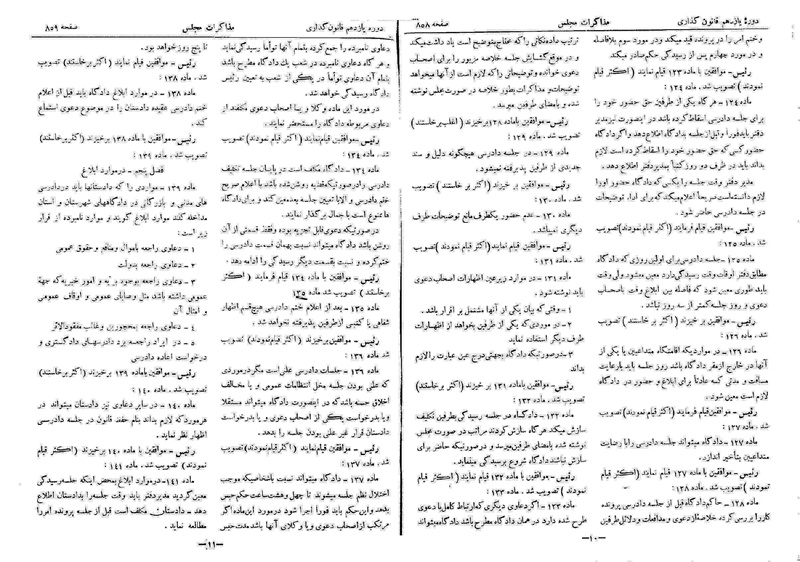 دوره یازدهم قانون گذاری
مذاکرات مجلس
صفحه ۸۵۸
وختم امر را در پرونده قید میکند ودر مورد سوم بلافاصله
و در مورد چهارم پس از رسیدگی حکم صادر میکند
رئیس - موافقین با ماده ۱۲۳ قیام نمایند ( اکثر قیام
نمودند ) تصویب شد . ماده ۱۲۴ :
ماده ۱۲۴- هر گاه یکی از طرفین حق حضور خود را
برای جلسه دادرسی اسقاط کرده باشد در اینصورت نیز مدیر
دفتر باید فوراً و قبل از جلسه بدادگاه اطلاع دهد و اگر دادگاه
حضور کسی که حق حضور خود را اسقاط کرده است لازم
بداند باید در ظرف دو روز کتباً بمدیر دفتر اطلاع دهد .
مدیر دفتر وقت جلسه را بکسی که دادگاه حضور او را
لازم دانسته است صریحاً اعلام میکند که برای اداء توضیحات
در جلسه دادرسی حاضر شود .
رئیس - موافقین قیام فرمایند ( اکثر قیام نمودند ) تصویب
شد . ماده ۱۲۵ :
ماده ۱۲۵- جلسه دادرسی برای اولین روزی که دادگاه
مطابق دفتر اوقات وقت رسیدگی دارد معین میشود ولی وقت
باید طوری معین شود که فاصله بین ابلاغ وقت باصحاب
دعوی و روز جلسه کمتر از سه روز نباشد .
رئیس - موافقین بر خیزند ( اکثر بر خاستند ) تصویب
شد . ماده ۱۲۶ :
ماده ۱۲۶ - در مواردیکه اقامتگاه متداعیین یا یکی از
آنها در خارج از مقر دادگاه باشد روز جلسه باید بارعایت
مسافت و مدتی که عادتاً برای ابلاغ و حضور در دادگاه
لازم است معین شود .
رئیس - موافقین قیام فرمایند ( اکثر قیام نمودند ) تصویب
شد . ماده ۱۲۷ :
ماده ۱۲۷ - دادگاه میتواند جلسه دادرسی را با رضایت
متداعیین بتأخیر اندازد .
رئیس - موافقین با ماده ۱۲۷ قیام نمایند ( اکثر قیام
نمودند ) تصویب شد . ماده ۱۲۸ :
ماده ۱۲۸ - حاکم دادگاه قبل از جلسه دادرسی پرونده
کار را بررسی کرده خلاصه از دعوی و مدافعات و دلائل طرفین
ترتیب داده نکاتی را که محتاج بتوضیح است یاد داشت میکند
و در موقع گشایش جلسه خلاصه مزبور را برای اصحاب
دعوی خوانده و توضیحاتی را که لازم است از آنها میخواهد
توضیحات و مذاکرات بطور خلاصه در صورت مجلس نوشته
شده و بامضای طرفین میرسد .
رئیس - موافقین با ماده ۱۲۸ برخیزند ( اغلب برخاستند )
تصویب شد . ماده ۱۲۹ :
ماده ۱۲۹ - در جلسه دادرسی هیچگونه دلیل و سند
جدیدی از طرفین پذیرفته نمیشود .
رئیس - موافقین بر خیزند ( اکثر بر خاستند ) تصویب
شد . ماده ۱۳۰ :
ماده ۱۳۰ - عدم حضور یکطرف مانع توضیحات طرف
دیگری نمیباشد .
رئیس - موافقین قیام نمایند ( اکثر قیام نمودند ) تصویب
شد . ماده ۱۳۱ :
ماده ۱۳۱ - در موارد زیر عین اظهارات اصحاب دعوی
باید نوشته شود .
۱ - وقتی که بیان یکی از آنها مشتمل بر اقرار باشد .
۲ - در موردی که یکی از طرفین بخواهد از اظهارات
طرف دیگر استفاده نماید
۳ - در صورتیکه دادگاه بجهتی درج عین عبارت را لازم
بداند
رئیس - موافقین باماده ۱۳۱ بر خیزند ( اکثر برخاستند )
تصویب شد . ماده ۱۳۲ :
ماده ۱۳۲ - دادگاه میتواند در جلسه دادرسی بطرفین تکلیف
سازش میکند هرگاه سازش کردند مراتب در صورت مجلس
نوشته شده بامضای طرفین میرسد و در صورتیکه حاضر برای
سازش نباشند دادگاه شروع برسیدگی مینماید .
رئیس - موافقین با ماده ۱۳۲ قیام نمایند ( اکثر قیام
نمودند ) تصویب شد . ماده ۱۳۳ :
ماده ۱۳۳ - اگر دعاوی دیگری که ارتباط کامل با دعوی
طرح شده دارد در همان دادگاه مطرح باشد دادگاه میتواند
-۱۰-
دوره یازدهم قانون گذاری
مذاکرات مجلس
صفحه ۸۵۹
دعاوی نامبرده را جمع کرده بتمام آنها تواماً رسیدگی نماید
و هر گاه دعاوی نامبرده در شعب یك دادگاه مطرح باشد
بتمام آن دعاوی تواماً در یکی از شعب به تعیین رئیس
دادگاه رسیدگی خواهد شد .
در مورد این ماده وکلا و یا اصحاب دعوی مکلفند از
دعاوی مربوطه دادگاه را مستحضر نمایند .
رئیس - موافقین قیام نمایند ( اکثر قیام نمودند ) تصویب
شد . ماده ۱۳۴ :
ماده ۱۳۴ - دادگاه مکلف است در پایان جلسه تکلیف
دادرسی را در صورتیکه قضیه روشن شده باشد با اعلام صریح
ختم دادرسی و الا با تعیین جلسه بعد معین کند و برای دادگاه
ها ممنوع است با جمال بر گذار نمایند .
در صورتیکه دعوی قابل تجزیه بوده و فقط قسمتی از آن
روشن باشد دادگاه میتواند نسبت بهمان قسمت دادرسی را
ختم کرده و نسبت بقسمت دیگر رسیدگی را ادامه دهد .
رئیس - موافقین با ماده ۱۳۴ قیام فرمایند ( اکثر
برخاستند ) تصویب شد ماده ۱۳۵
ماده ۱۳۵ - بعد از اعلام ختم دادرسی هیچ قسم اظهار
شفاهی یا کتبی از طرفین پذیرفته نخواهد شد .
رئیس - موافقین برخیزند ( اکثر قیام نمودند ) تصویب شد
ماده ۱۳۶ :
ماده ۱۳۶ - جلسات دادرسی علنی است مگر در موردی
که علنی بودن جلسه مخل انتظامات عمومی و یا مخالف
اخلاق حسنه باشد که در اینصورت دادگاه میتواند مستقلا
و یا بدرخواست یکی از اصحاب دعوی و یا بدرخواست
دادستان قرار غیر علنی بودن جلسه را بدهد .
رئیس - موافقین قیام نمایند ( اکثر قیام نمودند ) تصویب
شد . ماده ۱۳۷ :
ماده ۱۳۷ - دادگاه میتواند نسبت باشخاصیکه موجب
اختلال نظم جلسه میشوند تا چهل و هشت ساعت حکم حبس
بدهد و این حکم باید فورا اجرا شود در مورد این ماده اگر
مرتکب از اصحاب دعوی و یا وکلای آنها باشد مدت حبس
تا پنج روز خواهد بود .
رئیس - موافقین قیام نمایند ( اکثر برخاستند ) تصویب
شد . ماده ۱۳۸ :
ماده ۱۳۸ - در موارد ابلاغ دادگاه باید قبل از اعلام
ختم دادرسی عقیده دادستان را در موضوع دعوی استماع
کند .
رئیس - موافقین با ماده ۱۳۸ برخیزند ( اکثر برخاستند )
تصویب شد . ماده ۱۳۹ :
فصل پنجم - در موارد ابلاغ
ماده ۱۳۹ - مواردی را که دادستانها باید در دادرسی
های مدنی و بازرگانی در دادگاههای شهرستان و استان
مداخله کنند موارد ابلاغ گویند و موارد نامبرده از قرار
زیر است :
۱ - دعاوی راجعه باموال و منافع و حقوق عمومی
۲ - دعاوی راجعه بدولت
۳ - دعاوی راجعه بوجوه بریه و امور خیریه که جهة
عمومی داشته باشد مثل وصایای عمومی و اوقاف عمومی
و امثال آن
۴ - دعاوی راجعه بمحجورین و غائب مفقودالاثر
۵ - در ایراد راجعه برد دادرسهای دادگستری و
درخواست اعاده دادرسی
رئیس - موافقین باماده ۱۳۹ برخیزند ( اکثر برخاستند )
تصویب شد . ماده ۱۴۰ :
ماده ۱۴۰ - در سایر دعاوی نیز دادستان میتواند در
هر مورد که لازم بداند بنام حفظ قانون در جلسه دادرسی
اظهار نظر نماید .
رئیس - موافقین با ماده ۱۴۰ برخیزند ( اکثر قیام
نمودند ) تصویب شد . ماده ۱۴۱ :
ماده ۱۴۱- در موارد ابلاغ بمحض اینکه جلسه رسیدگی
معین گردید مدیر دفتر باید وقت جلسه را بدادستان اطلاع
دهد - دادستان مکلف است قبل از جلسه پرونده امر را
مطالعه نماید .
-۱۱-